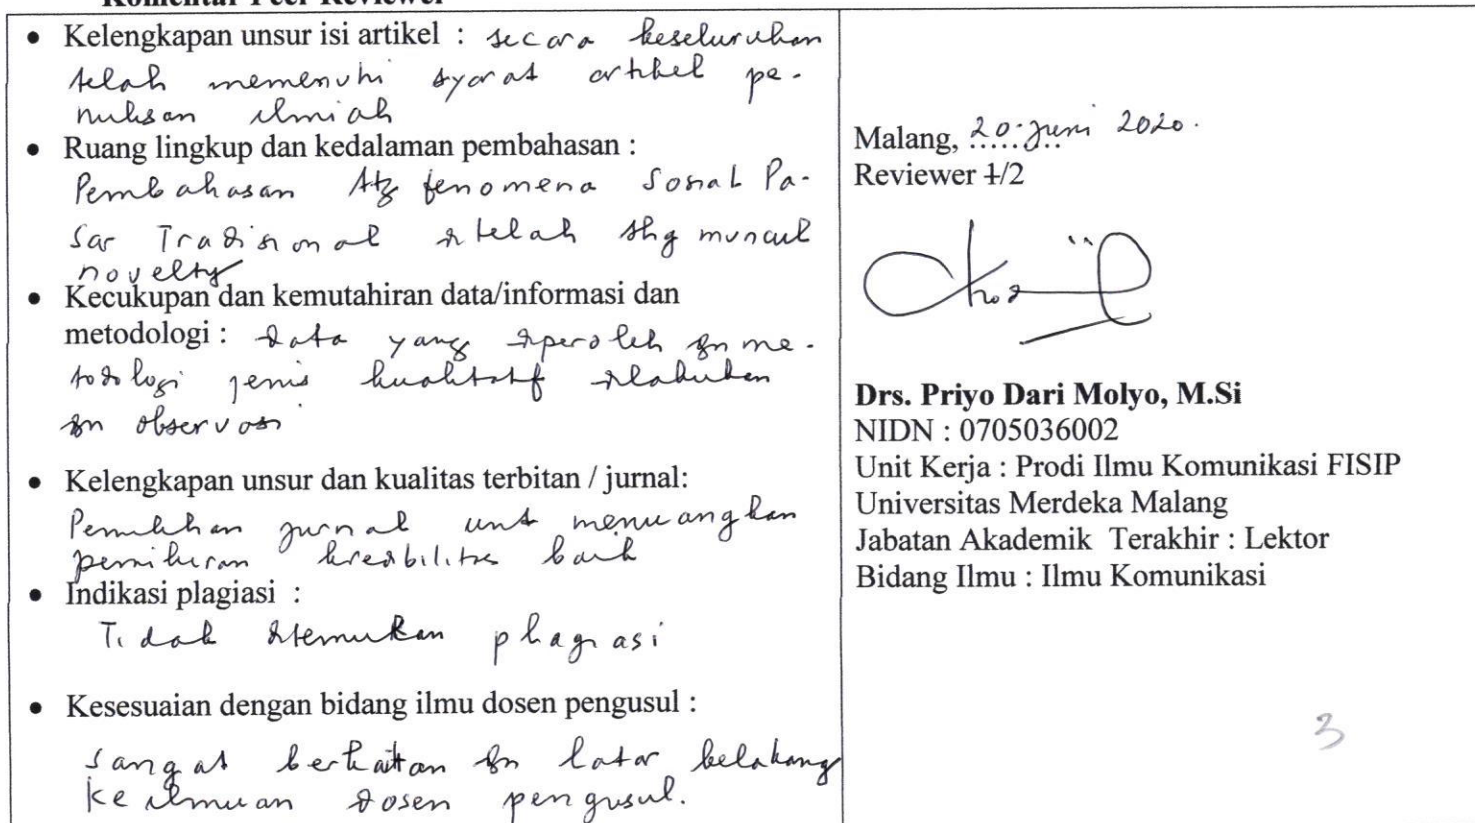 Komentar Peer Reviewer
• Kelengkapan unsur isi artikel : secara keseluruhan
telah memenuhi syarat artikel pe-
nulisan ilmiah
• Ruang lingkup dan kedalaman pembahasan :
Pembahasan ttg fenomena Sosial Pa-
sar Tradisional ditelaah shg muncul
novelty
• Kecukupan dan kemutahiran data/informasi dan
metodologi : data yang diperoleh dn me-
todologi jenis kualitatif dilakukan
dn observasi
• Kelengkapan unsur dan kualitas terbitan / jurnal:
Pemilihan jurnal unt menuangkan
pemikiran kredibilitas baik
• Indikasi plagiasi :
Tidak ditemukan plagiasi
• Kesesuaian dengan bidang ilmu dosen pengusul :
Sangat berkaitan dn latar belakang
keilmuan dosen pengusul.
Malang, 20 Juni 2020.
Reviewer 1/2
Drs. Priyo Dari Molyo, M.Si
NIDN : 0705036002
Unit Kerja : Prodi Ilmu Komunikasi FISIP
Universitas Merdeka Malang
Jabatan Akademik Terakhir : Lektor
Bidang Ilmu : Ilmu Komunikasi
3